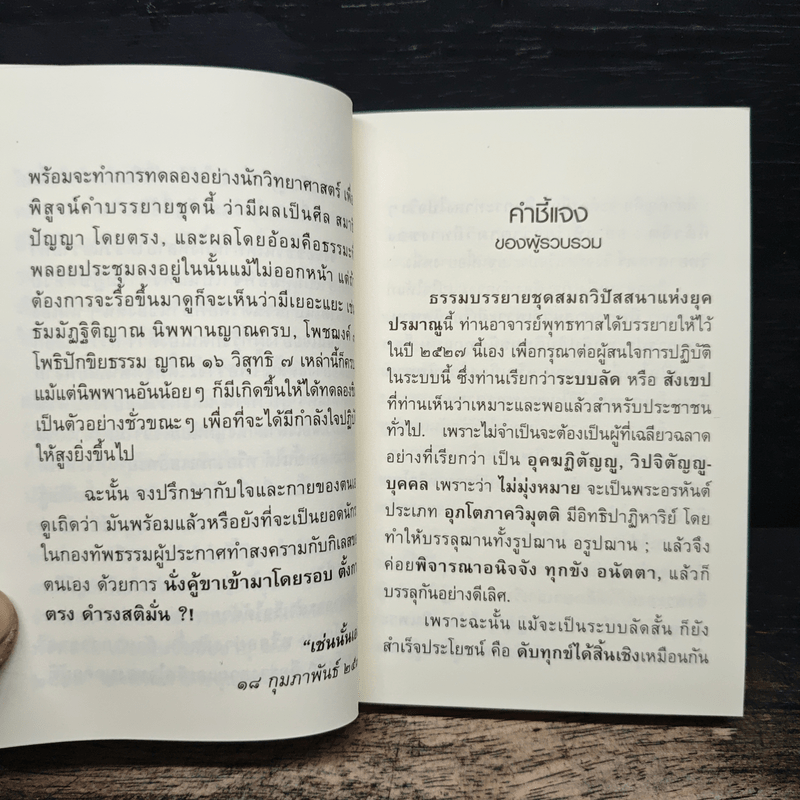 พร้อมจะทำการทดลองอย่างนักวิทยาศาสตร์
พิสูจน์คำบรรยายชุดนี้ ว่ามีผลเป็นศีล
ปัญญา โดยตรง, และผลโดยอ้อมคือธรรมะ
พลอยประชุมลงอยู่ในนั้นแม้ไม่ออกหน้า
ต้องการจะรื้อขึ้นมาดูก็จะเห็นว่ามีเยอะแยะ
ธัมมัฏฐิติญาณ นิพพานญาณครบ, โพชฌงค์
โพธิปักขิยธรรม ญาณ ๑๖ วิสุทธิ ๗ เหล่านี้ก็
แม้แต่นิพพานอันน้อยๆ ก็มีเกิดขึ้นให้ได้ทดลอง
เป็นตัวอย่างชั่วขณะๆ เพื่อที่จะได้มีกำลังใจ
ให้สูงยิ่งขึ้นไป
ฉะนั้น จงปรึกษากับใจและกายของตน
ดูเถิดว่า มันพร้อมแล้วหรือยังที่จะเป็นยอดนัก
ในกองทัพธรรมผู้ประกาศทำสงครามกับกิเลส
ตนเอง ด้วยการ นั่งคู้ขาเข้ามาโดยรอบ ตั้ง
ตรง ดำรงสติมั่น ?!
“เช่นนั้น
๑๘ กุมภาพันธ์
คำชี้แจง
ของผู้รวบรวม
ธรรมบรรยายชุดสมถวิปัสสนาแห่งยุค
ปรมาณูนี้ ท่านอาจารย์พุทธทาสได้บรรยายให้ไว้
ในปี ๒๕๒๗ นี้เอง เพื่อกรุณาต่อผู้สนใจการปฏิบัติ
ในระบบนี้ ซึ่งท่านเรียกว่าระบบลัด หรือ สังเขป
ที่ท่านเห็นว่าเหมาะและพอแล้วสำหรับประชาชน
ทั่วไป. เพราะไม่จำเป็นจะต้องเป็นผู้ที่เฉลียวฉลาด
อย่างที่เรียกว่า เป็น อุคฆฏิตัญญู, วิปจิตัญญู-
บุคคล เพราะว่า ไม่มุ่งหมาย จะเป็นพระอรหันต์
ประเภท อุภโตภาควิมุตติ มีอิทธิปาฏิหาริย์ โดย
ทำให้บรรลุฌานทั้งรูปฌาน อรูปฌาน ; แล้วจึง
ค่อยพิจารณาอนิจจัง ทุกขัง อนัตตา, แล้วก็
บรรลุกันอย่างดีเลิศ.
เพราะฉะนั้น แม้จะเป็นระบบลัดสั้น ก็ยัง
สำเร็จประโยชน์ คือ ดับทุกข์ได้สิ้นเชิงเหมือนกัน